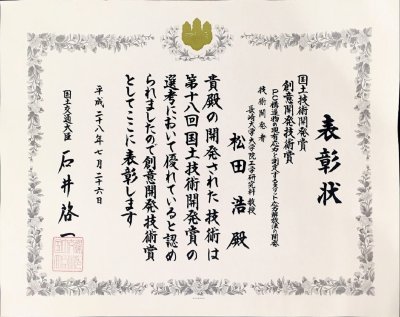 表彰状
国土技術開発賞
創意開発技術賞
PC構造物の現有応力を測定するスリット応力解放法の開発
技術開発者
長崎大学大学院工学研究科教授
松田 浩 殿
貴殿の開発された技術は
第十八回国土技術開発賞の
選考において優れていると認め
られましたので創意開発技術賞
としてここに表彰します
平成二十八年七月二十六日
国土交通大臣
石井啓一